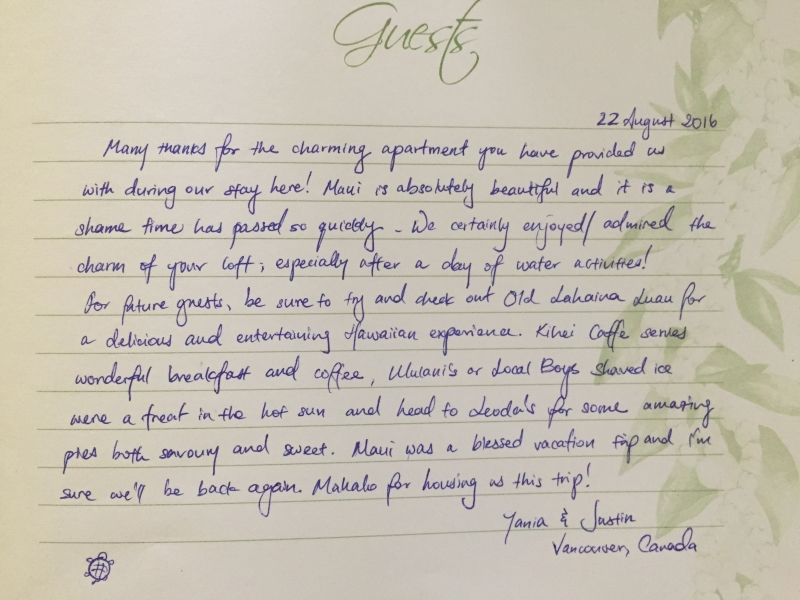 Guests
22 August 2016
Many thanks for the charming apartment you have provided us
with during our stay here! Maui is absolutely beautiful and it is a
shame time has passed so quickly - We certainly enjoyed/ admired the
charm of your loft; especially after a day of water activities!
For future guests, be sure to try and check out Old Lahaina Luau for
a delicious and entertaining Hawaiian experience. Kihei Caffe serves
wonderful breakfast and coffee, Ululani's or Local Boys shaved ice
were a treat in the hot sun and head to Leoda's for some amazing
pies both savoury and sweet. Maui was a blessed vacation trip and I'm
sure we'll be back again. Mahalo for housing us this trip!
Tania & Justin
Vancouver, Canada